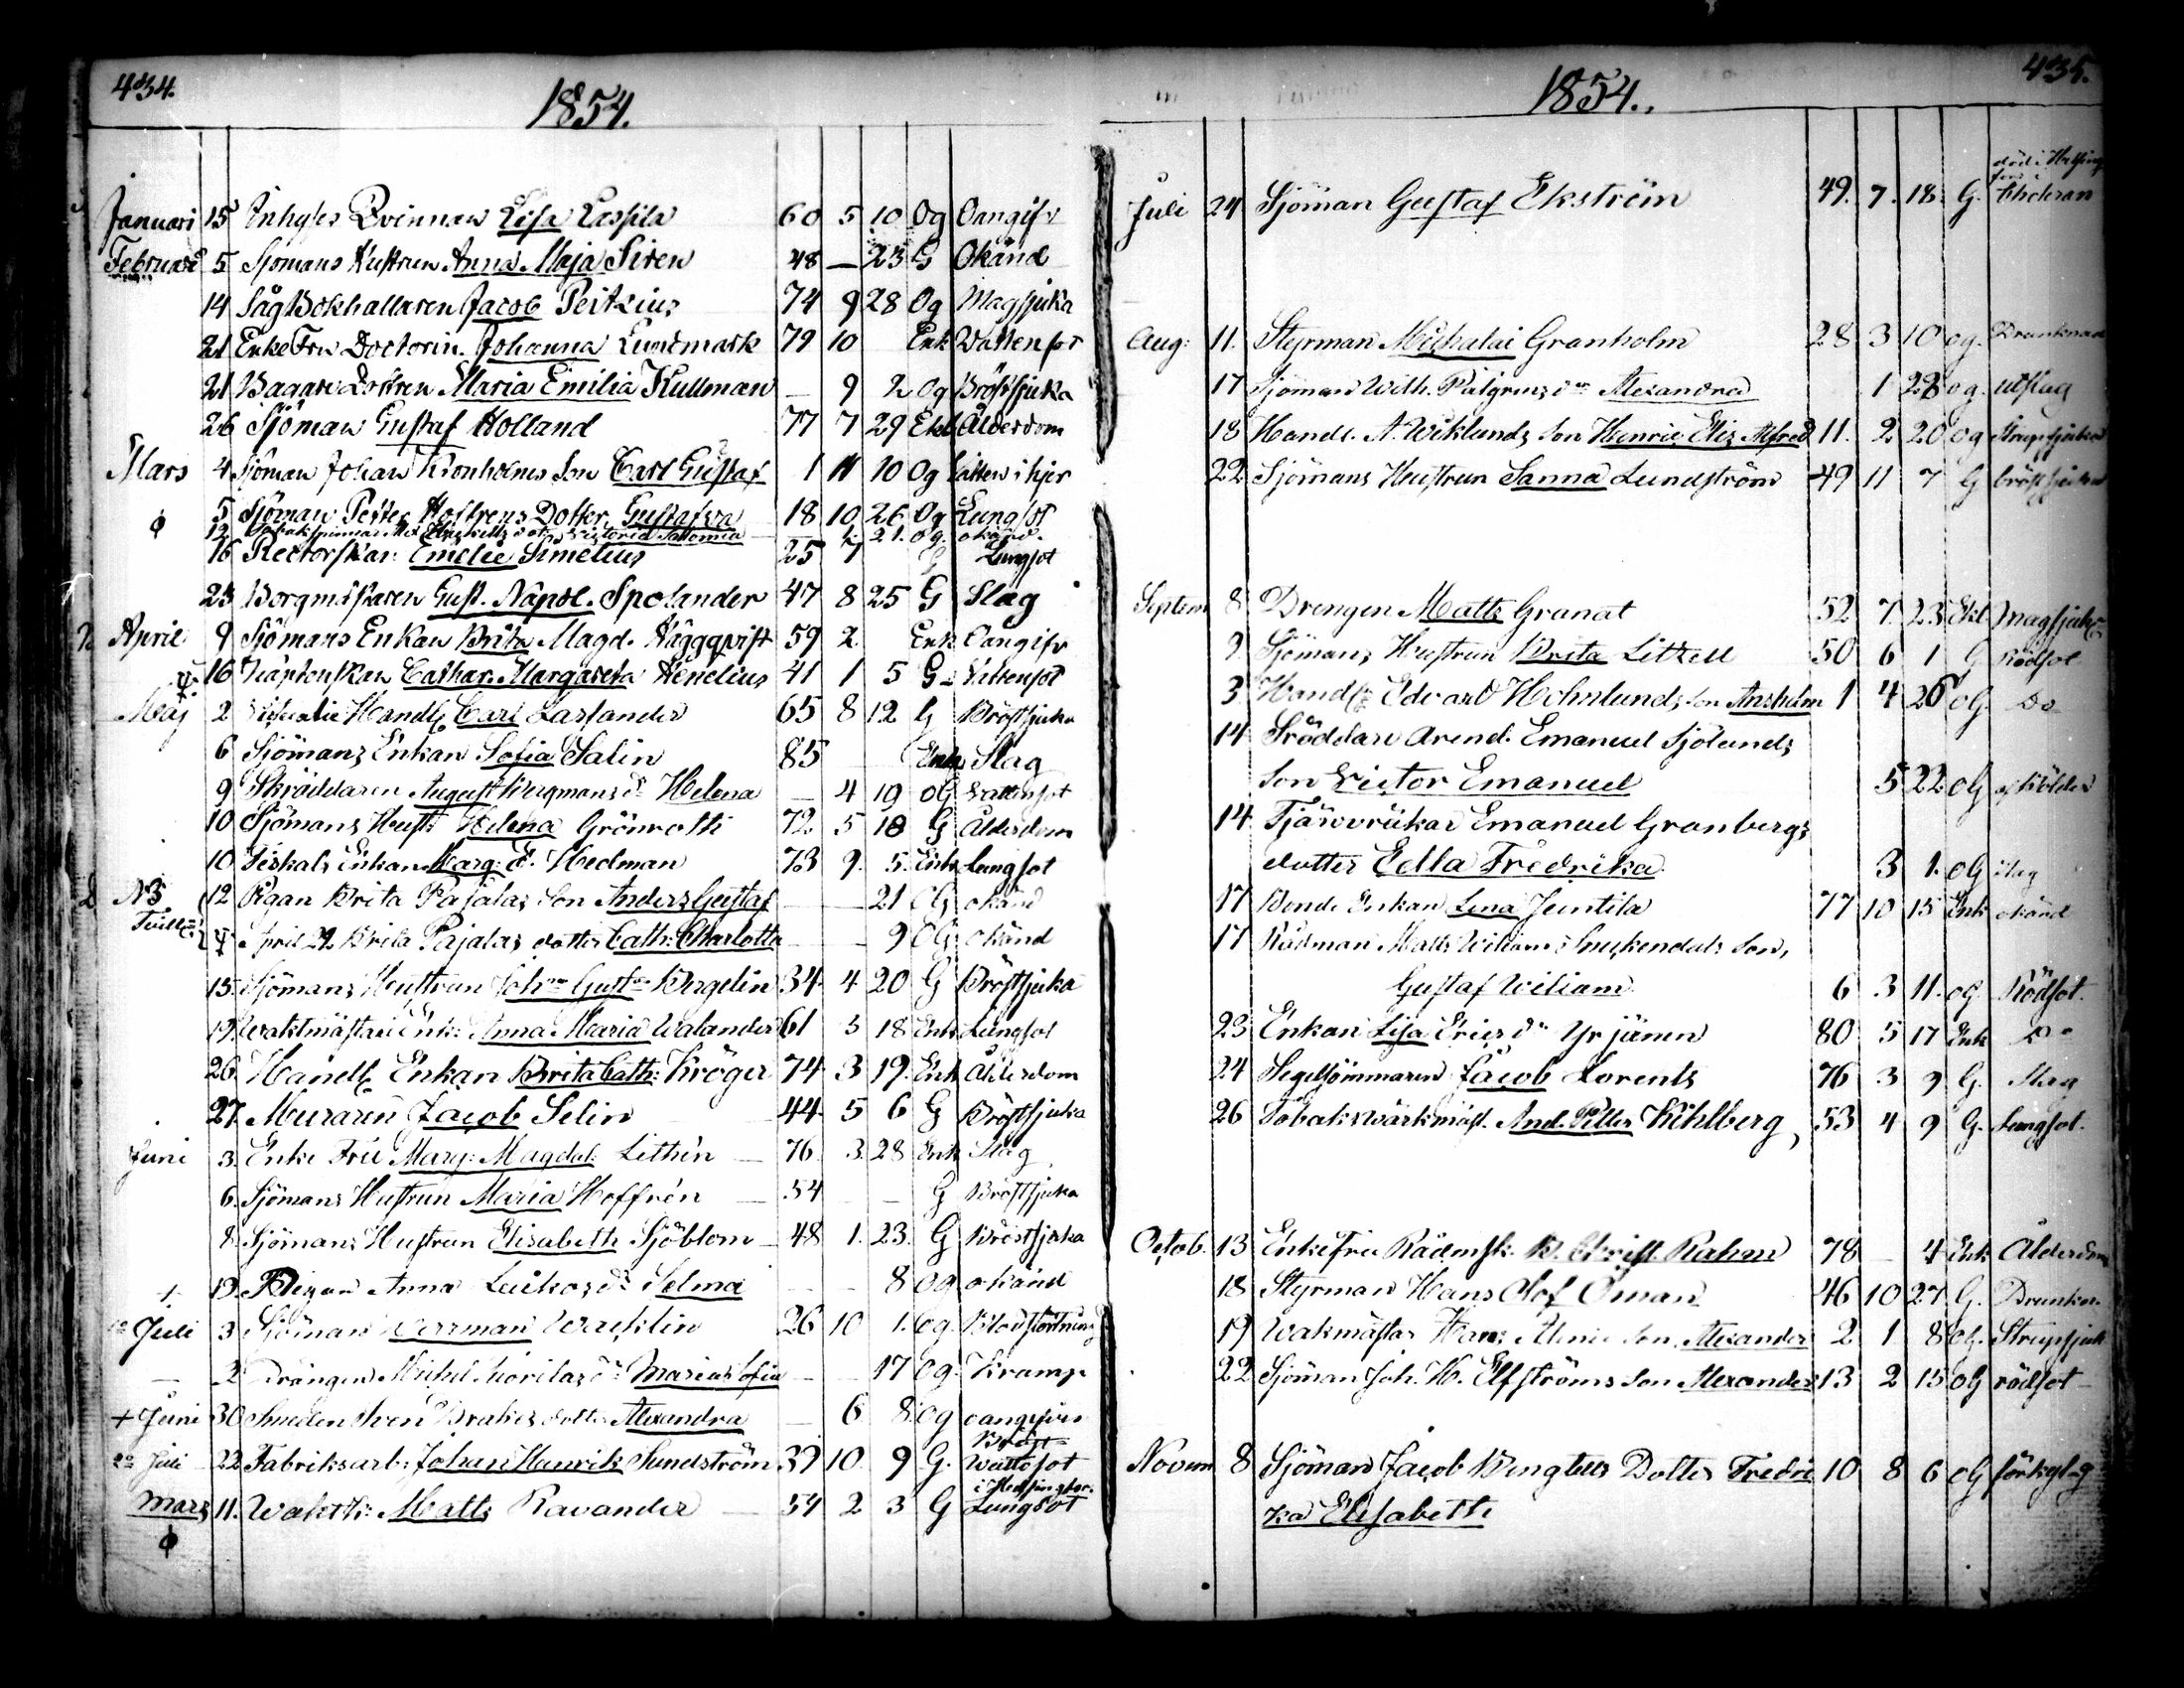 434.
1854.
Januari 15 Inhyses Qvinnan Lisa Lassila 60 5 10 Og Oangifv
Februari 5 Sjömans Hustrun Anna Maja Siren 48 — 23 G Okänd
14 Såg Bokhallaren Jacob Peitzius 74 9 28 Og Magsjuka
21 Enke Fru Doctorin. Johanna Lundmark 79 10 Enk Vattensot
21 Bagare Dottren Maria Emilia Kullman — 9 2 Og Bröstsjuka
26 Sjöman Gustaf Holland 77 7 29 Ekl Ålderdom
Mars 4 Sjöman Johan Kronholms Son Carl Gustaf 1 11 10 Og Vatten i hjer
5 Sjöman Petter Hoffrens Dotter Gustafva 18 10 26 Og Lungsot
12 Victoria 1. 21. og. okänd.
16 Rectorskan Emelie Simelius 25 7 G Lungsot
23 Borgmästaren Gust. Napol. Spolander 47 8 25 G Slag
April 9 Sjömans Enkan Brita Magd. Häggqvist 59 2. Enk Oangifv
16 Kaptenskan Cathar. Margareta Henelius 41 1 5 G Vattensot
Maj 2 Handl Carl Laslander 65 8 12 G Bröstsjuka
6 Sjömans Enkan Sofia Salin 85 Enk Slag
9 Skräddaren August Bergmans dr Helena — 4 19 OG Vattensot
10 Sjömans Hust: Helena Grönroth 72 5 18 G Ålderdom
10 Fiskals Enkan Marg: E. Hedman 73 9. 5. Enk Lungsot
N3 12 Pigan Brita Pajalas Son Anders Gustaf — — 21 OG okänd
April 29. Brita Pajalas dotter Cath: Charlotta — — 9 OG okänd
15. Sjömans Hustrun Joh:na Gust:va Bergelin 34 4 20 G Bröstsjuka
19. Waktmästare Enk: Anna Maria Walander 61 3 18 Enk Lungsot
26. Handl Enkan Brita Cath: Kröger 74 3 19. Enk Ålderdom
27. Muraren Jacob Selin 44 5 6 G Bröstsjuka
Juni 3. Enke Fru Marg: Magdal: Lithén — 76. 3. 28 Enk Slag
6. Sjömans Hustrun Maria Hoffrén — 54 — — G Bröstsjuka
8. Sjömans Hustrun Elisabeth Sjöblom 48 1. 23. G Bröstsjuka
+ 13. Pigan Anna Luikas dr Selma — — 8 Og okänd
Juli 3 Sjöman Herrman Wacklin 26 10 1. Og. Blodstörtning
— 2 Drängen Michel dr Maria Sofia — — 17 Og. Kramp
+ Juni 30 Smeden Sven Brakes dotter Alexandra — 6 8. Og oangifven
Juli 22 Fabriksarb: Johan Henrik Sundström 39 10. 9 G. Vattsot
i Helsingfor.
Mars 11. Waktk: Matts Ravander — 54 2 3 G Lungsot

435.
1854.
död i Helsingfors i
Juli 24 Sjöman Gustaf Ekström 49. 7. 18. G. Choleran
Aug: 11. Styrman Michaläi Granholm 28 3 10 og. Drunknad
17 Sjöman Wilh. Palgrens dr Alexandra 1 28 og. utslag
18 Handl. A. Wiklunds Son Henric Elis Alfred 11. 2 20 og Strupsjukan
22 Sjömans Hustrun Sanna Lundström 49 11 7 G bröstsjukan
Septem 8 Drengen Matts Granat 52 7. 23 Ekl Magsjuk
9. Sjömans Hustrun Brita Litzell 50 6 1 G Rödsot
3 Handl Edvard Holmlunds Son Anshelm 1 4 26 oG Do
14 Sräddare Arend. Emanuel Sjölunds
Son Victor Emanuel 5 22 oG af kölder
14 Tjärvräkar Emanuel Granbergs
dotter Edla Fredrika. 3 1. oG Slag
17 Bonde Enkan Lena Juntila 77 10 15 Enk okänd
17 Rådman Matts Wiliam Snickendals Son,
Gustaf Wiliam. 6 3 11. oG. Rödsot.
23 Enkan Lisa Ericsdr Yrjänen 80 5 17 Enk Do
24 Segelsömmaren Jacob Lorents 76 3 9 G. Slag
26 Tobakswärkmäst. And. Petter Kihlberg, 53 4 9 G. Lungsot.
Octob. 13 Enkefru Rådmsk. B. Christ. Rahm 78 — 4 Enk Ålderdom
18 Styrman Hans Olof Öman 46 10 27 G. Drunkn.
19 Wakmästar Hans Son Alexander 2 1 8 oG. Strupsjuk
22 Sjöman Joh. H. Elfströms Son Alexander 13 2 15 oG rödsot
Novem 8 Sjöman Jacob Bengtells Dotter Fredri 10 8 6 oG förkyl-g
ka Elisabeth